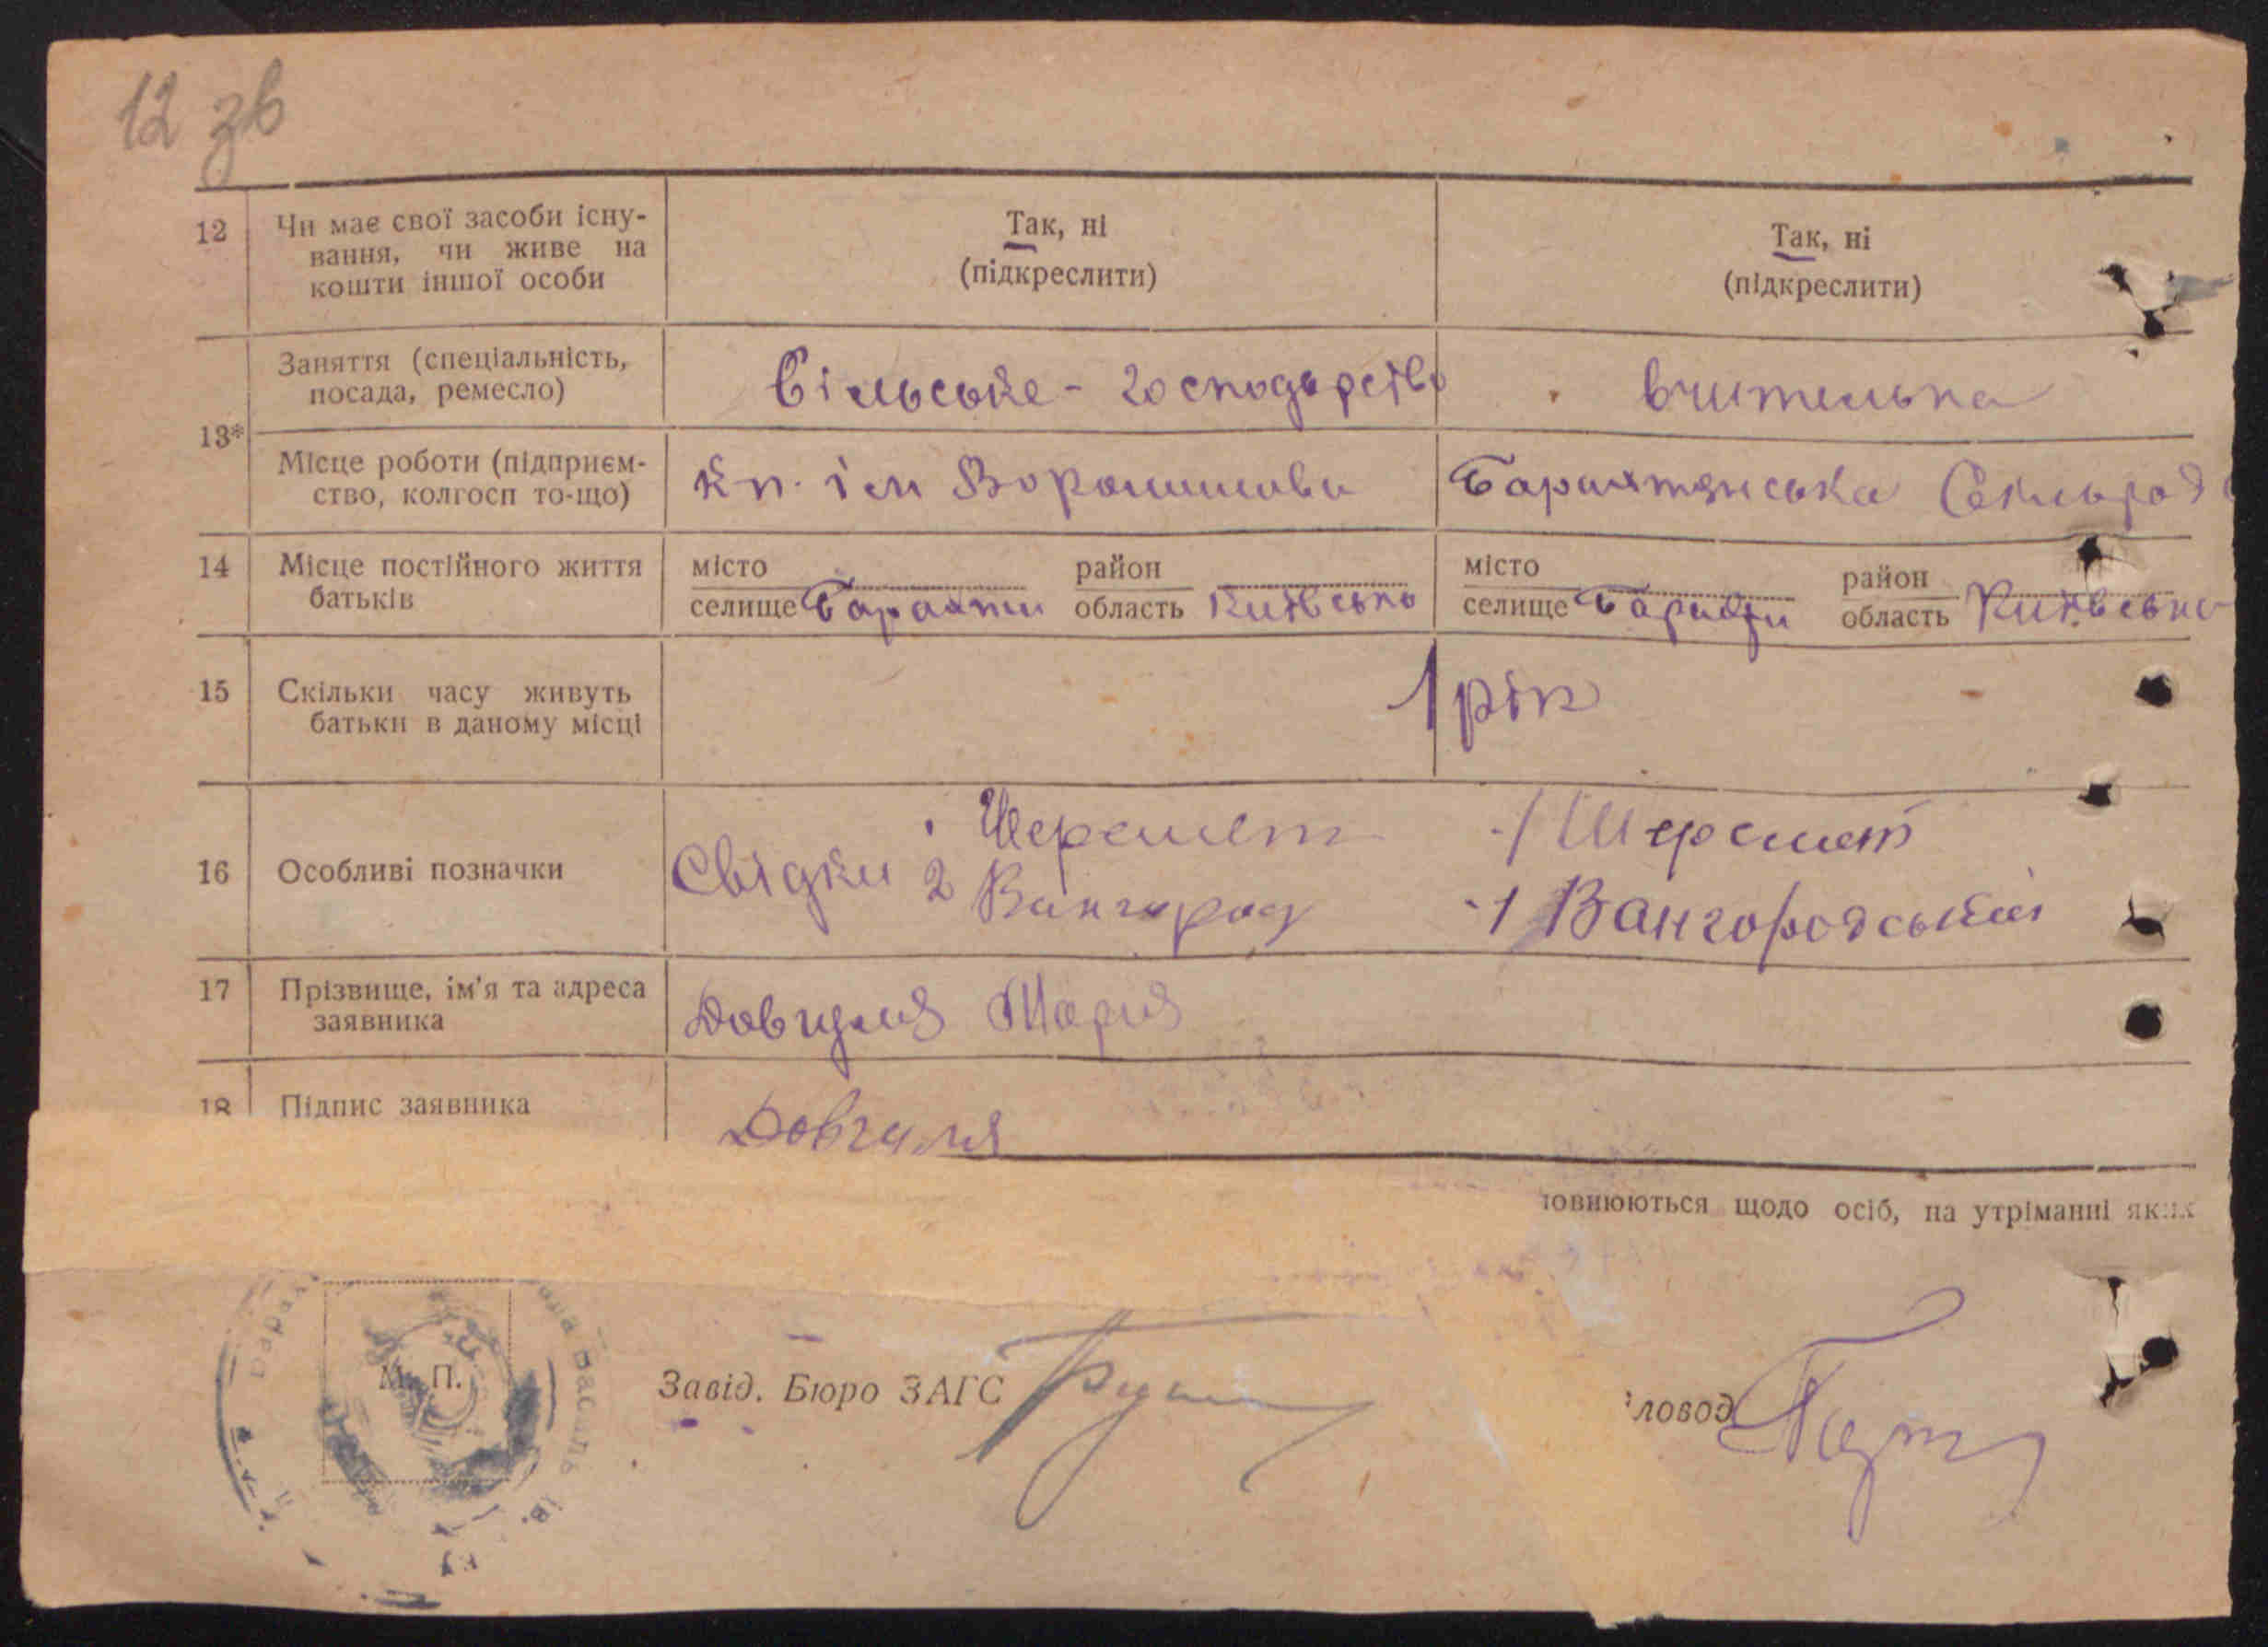 12 зв
12 Чи має свої засоби існу-
вання, чи живе на
кошти іншої особи
Так, ні
(підкреслити)
Так, ні
(підкреслити)
13*
Заняття (спеціальність,
посада, ремесло)
Сільське - господарство
вчителька
Місце роботи (підприєм-
ство, колгосп то-що)
Кп. ім Ворошилова
Барахтянська Сільрада
14 Місце постійного життя
батьків
місто
селище Барахти
район
область Київська
місто
селище Барахти
район
область Київська
15 Скільки часу живуть
батьки в даному місці
1 рік
16 Особливі позначки
Свідки
Шеремет -/ Шеремет
2 Вангород -/ Вангородський
17 Прізвище, ім'я та адреса
заявника
Довгуля Марія
18 Підпис заявника
Довгуля
овнюються щодо осіб, на утріманні яких
М. П.
Завід. Бюро ЗАГС
ловод